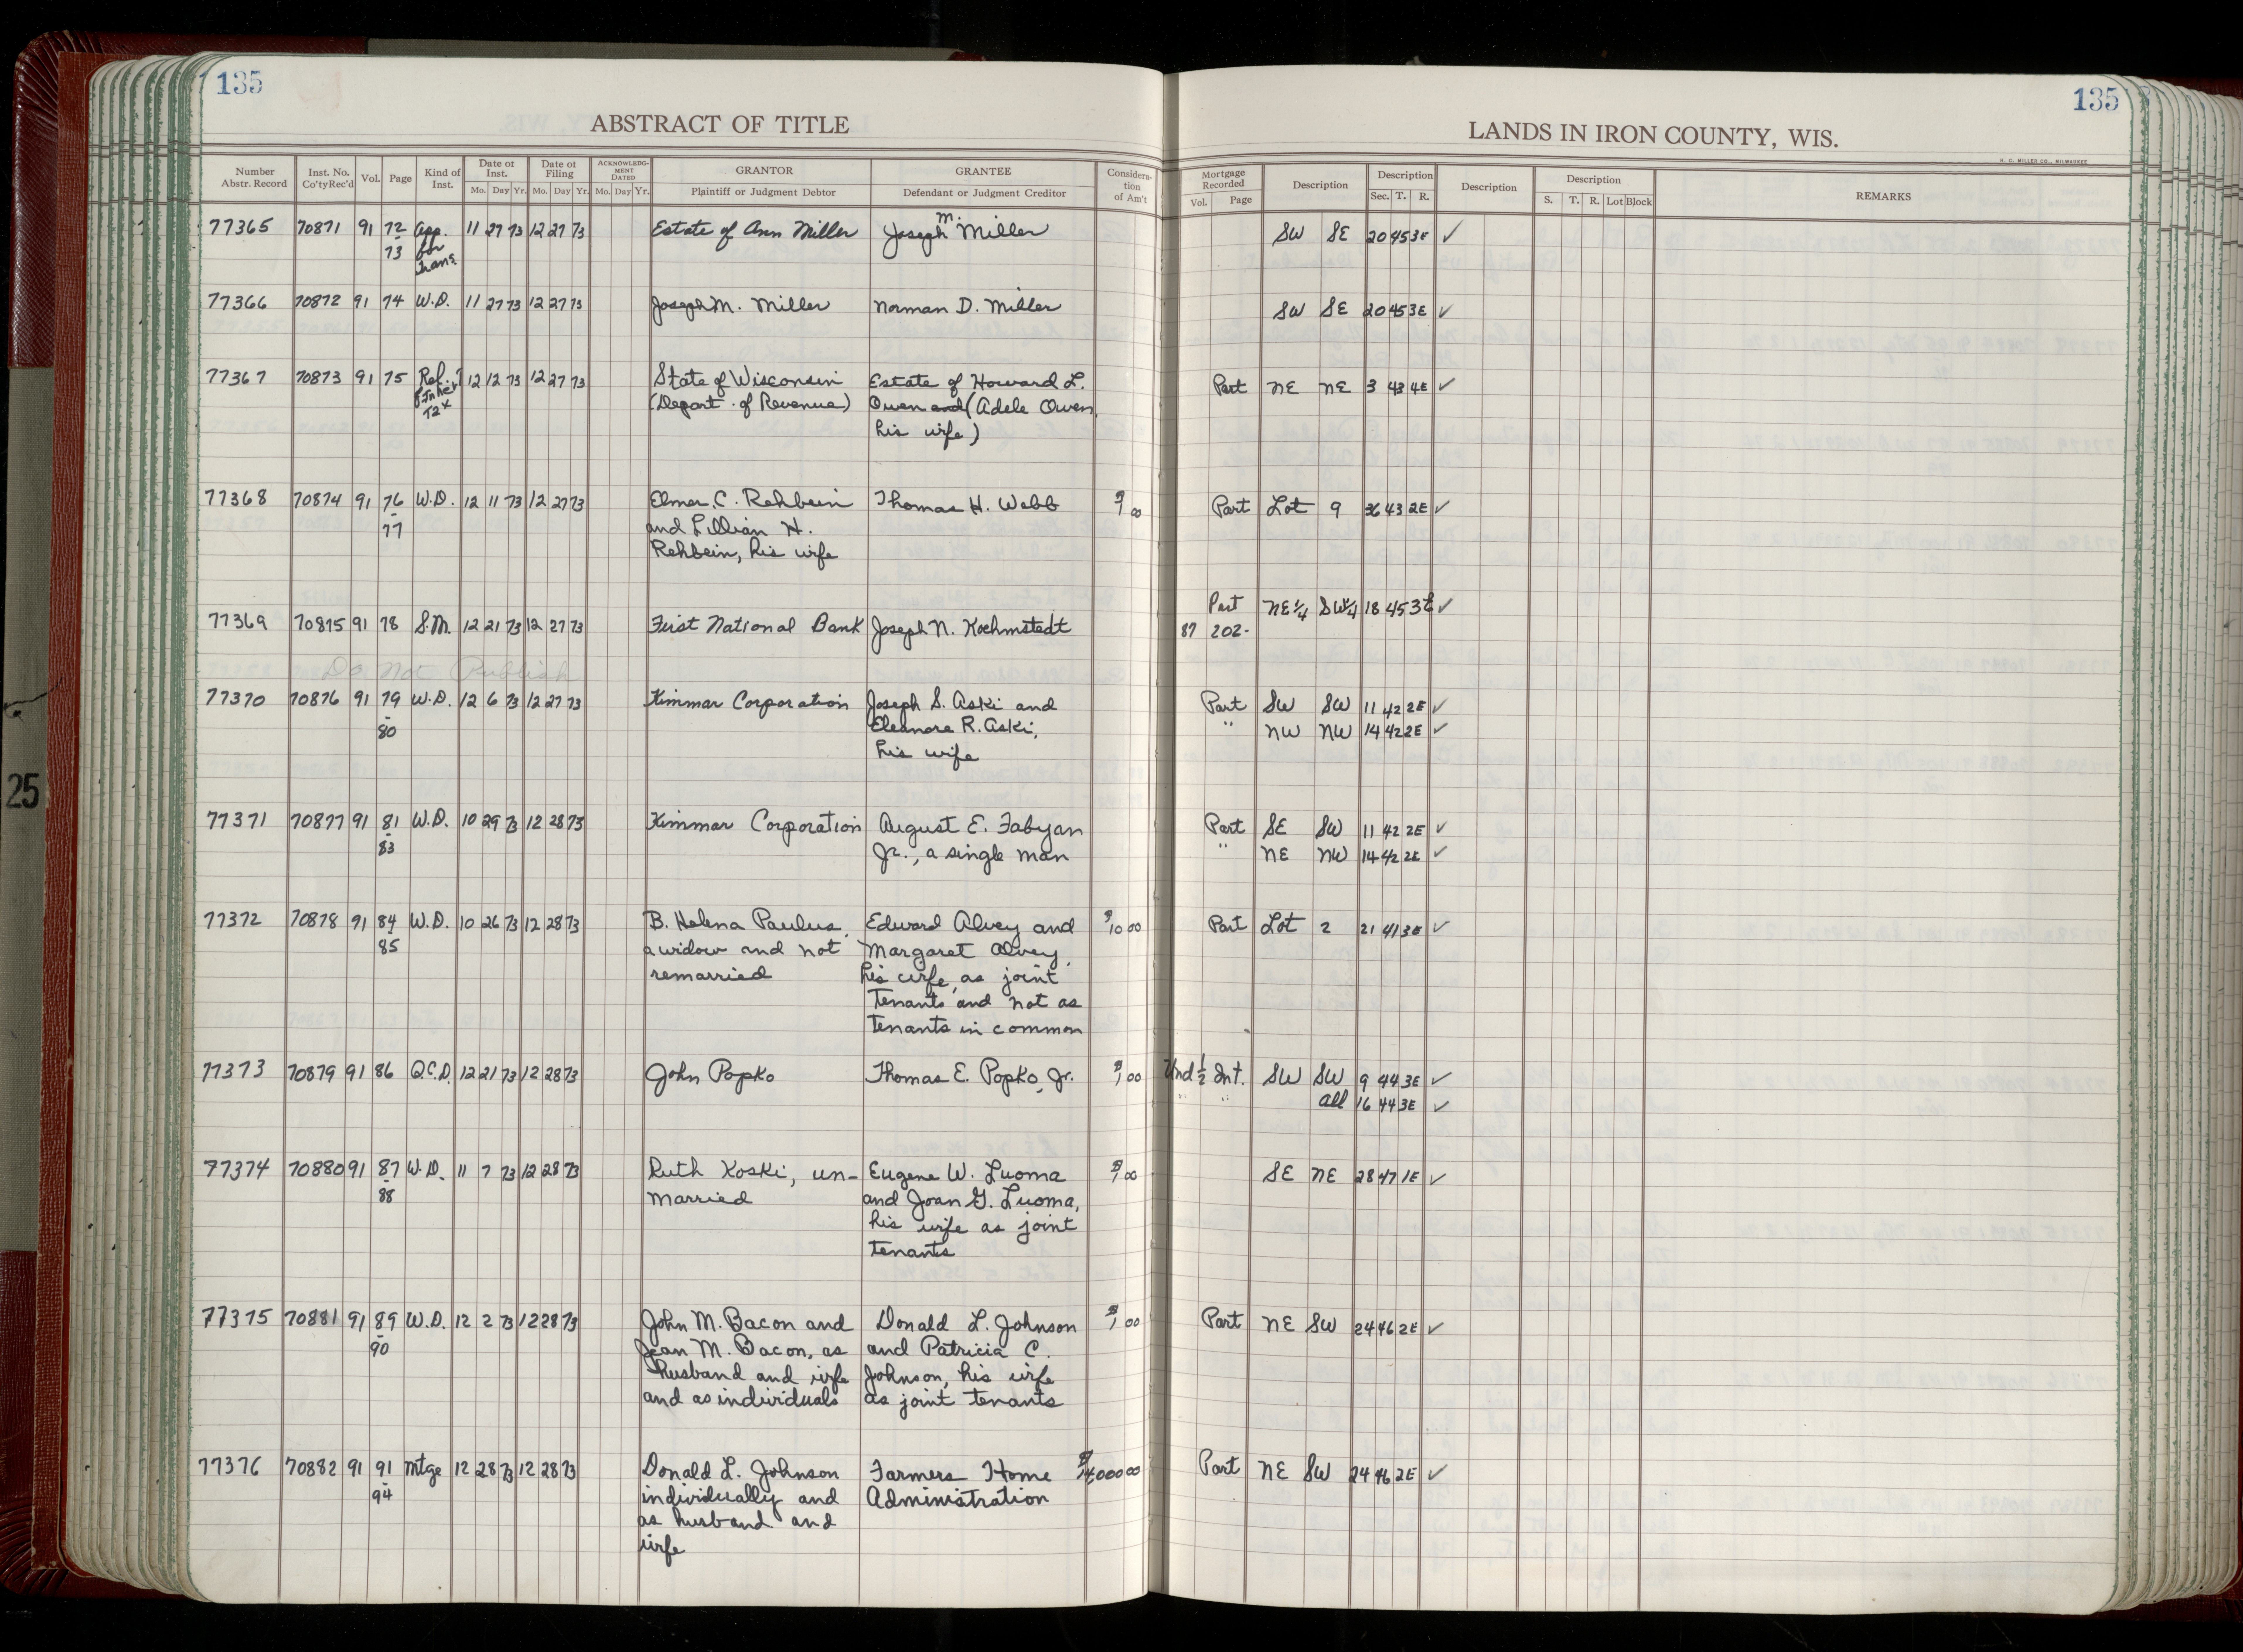 135
ABSTRACT OF TITLE
135
LANDS IN IRON COUNTY, WIS.
H. C. MILLER CO., MILWAUKEE
Number Abstr. Record Inst. No. Co'ty Rec'd Vol. Page Kind of Inst. Date of Inst. Mo. Day Yr. Date of Filing Mo. Day Yr. ACKNOWLEDGMENT DATED Mo. Day Yr. GRANTOR Plaintiff or Judgment Debtor GRANTEE Defendant or Judgment Creditor Consideration of Am't Mortgage Recorded Vol. Page Description Description Sec. T. R. Description Description S. T. R. Lot Block REMARKS
77365 70871 91 72 App. 11 27 73 12 27 73 Estate of Ann Miller Joseph M. Miller SW SE 20 45 3E ✓
- for
73 Trans.
77366 70872 91 74 W.D. 11 27 73 12 27 73 Joseph M. Miller Norman D. Miller SW SE 20 45 3E ✓
77367 70873 91 75 Rel. 12 12 73 12 27 73 State of Wisconsin Estate of Howard L. Part NE NE 3 43 4E ✓
of Inher (Depart. of Revenue) Owen and (Adele Owen,
Tax his wife)
77368 70874 91 76 W.D. 12 11 73 12 27 73 Elmer C. Rehbein Thomas H. Webb $1 00 Part Lot 9 36 43 2E ✓
- and Lillian H.
77 Rehbein, his wife
Part NE¼ SW¼ 18 45 3E ✓
77369 70875 91 78 S.M. 12 21 73 12 27 73 First National Bank Joseph N. Kochmstedt 87 202-
Do Not Publish
77370 70876 91 79 W.D. 12 6 73 12 27 73 Kimmar Corporation Joseph S. Aski and Part SW SW 11 42 2E ✓
- Eleanore R. Aski, " NW NW 14 42 2E ✓
80 his wife
77371 70877 91 81 W.D. 10 29 73 12 28 73 Kimmar Corporation August E. Fabyan Part SE SW 11 42 2E ✓
- 83 Jr., a single man " NE NW 14 42 2E ✓
77372 70878 91 84 W.D. 10 26 73 12 28 73 B. Helena Paulus, Edward Alvey and $10 00 Part Lot 2 21 41 3E ✓
85 a widow and not Margaret Alvey,
remarried his wife, as joint
tenants and not as
tenants in common
77373 70879 91 86 Q.C.D. 12 21 73 12 28 73 John Popko Thomas E. Popko, Jr. $1 00 Und ½ Int. SW SW 9 44 3E ✓
" " all 16 44 3E ✓
77374 70880 91 87 W.D. 11 7 73 12 28 73 Ruth Koski, un- Eugene W. Luoma $1 00 SE NE 28 47 1E ✓
- 88 married and Joan G. Luoma,
his wife as joint
tenants
77375 70881 91 89 W.D. 12 2 73 12 28 73 John M. Bacon and Donald L. Johnson $1 00 Part NE SW 24 46 2E ✓
- 90 Jean M. Bacon, as and Patricia C.
husband and wife Johnson, his wife
and as individuals as joint tenants
77376 70882 91 91 Mtge 12 28 73 12 28 73 Donald L. Johnson Farmers Home Part NE SW 24 46 2E ✓
- 94 individually and Administration
as husband and
wife
25